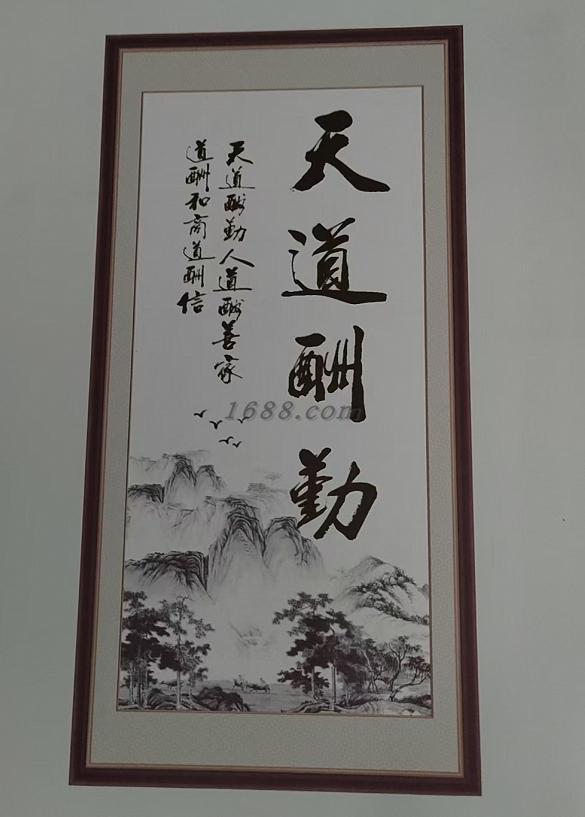 天道酬勤
天道酬勤人道酬善家
道酬和商道酬信
1688.com